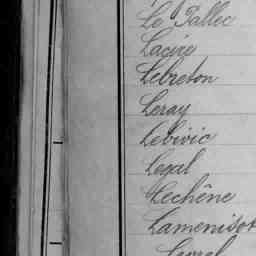 Le Pallec
Lacire
Lebreton
Leray
Lebivic
Legal
Lechêne
Lamenisot